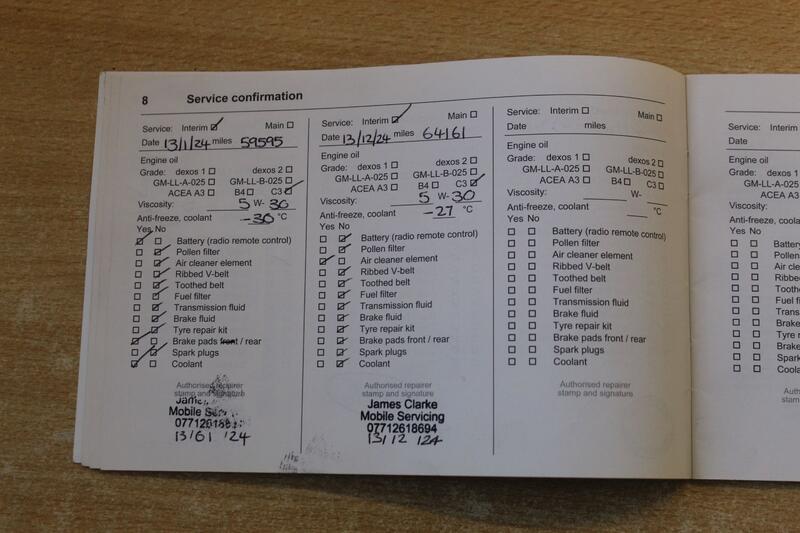 8 Service confirmation
Service: Interim Main
Date 13/1/24 miles 59595
Engine oil
Grade: dexos 1 dexos 2
GM-LL-A-025 GM-LL-B-025
ACEA A3 B4 C3
Viscosity: 5 W- 30
Anti-freeze, coolant -30 °C
Yes No
Battery (radio remote control)
Pollen filter
Air cleaner element
Ribbed V-belt
Toothed belt
Fuel filter
Transmission fluid
Brake fluid
Tyre repair kit
Brake pads front / rear
Spark plugs
Coolant
Authorised repairer
stamp and signature
Mobile
13/ /24
Service: Interim Main
Date 13/12/24 miles 64161
Engine oil
Grade: dexos 1 dexos 2
GM-LL-A-025 GM-LL-B-025
ACEA A3 B4 C3
Viscosity: 5 W- 30
Anti-freeze, coolant -27 °C
Yes No
Battery (radio remote control)
Pollen filter
Air cleaner element
Ribbed V-belt
Toothed belt
Fuel filter
Transmission fluid
Brake fluid
Tyre repair kit
Brake pads front / rear
Spark plugs
Coolant
Authorised repairer
stamp and signature
James Clarke
Mobile Servicing
07712618694
13/12 /24
Service: Interim Main
Date miles
Engine oil
Grade: dexos 1 dexos 2
GM-LL-A-025 GM-LL-B-025
ACEA A3 B4 C3
Viscosity: W-
Anti-freeze, coolant °C
Yes No
Battery (radio remote control)
Pollen filter
Air cleaner element
Ribbed V-belt
Toothed belt
Fuel filter
Transmission fluid
Brake fluid
Tyre repair kit
Brake pads front / rear
Spark plugs
Coolant
Authorised repairer
stamp and signature
Service: Interim
Date
Engine oil
Grade: dexos 1
GM-LL-A-025
ACEA A3
Viscosity:
Anti-freeze, coolant
Yes No
Pollen
Air
Fuel
Brake
Tyre
Brake
Spark